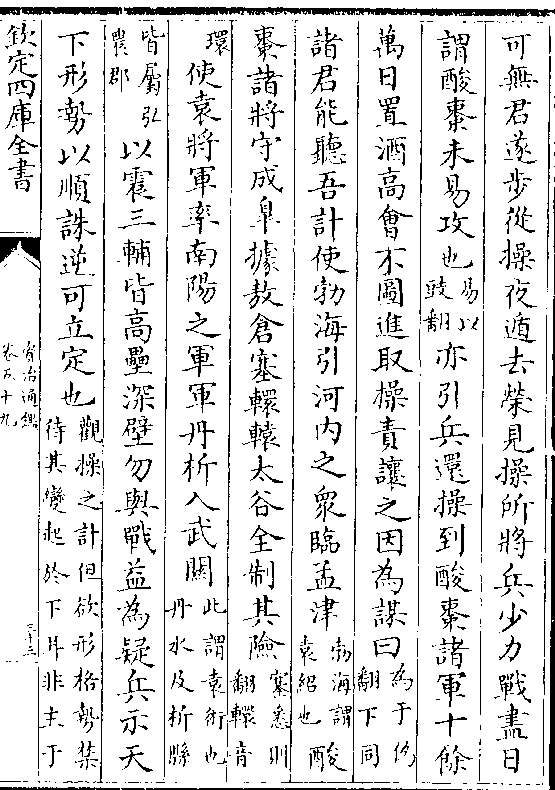 可無君遂步從操夜遁去榮見操所將兵少力戰盡日
謂酸棗未易攻也易以豉翻亦引兵還操到酸棗諸軍十餘
萬日置酒高會不圖進取操責讓之因為謀曰為于偽翻下同
諸君能聽吾計使勃海引河內之衆臨孟津勃海謂袁紹也酸
棗諸將守成臯據敖倉塞轘轅太谷全制其險塞悉則翻轘音
環使袁將軍率南陽之軍軍丹析入武關此謂袁術也丹水及析縣
皆屬弘農郡以震三輔皆高壘深壁勿與戰益為疑兵示天
下形勢以順誅逆可立定也觀操之計但欲形格勢禁待其變起於下耳非主于
欽定四庫全書
資治通鑑
卷五十九
三十三